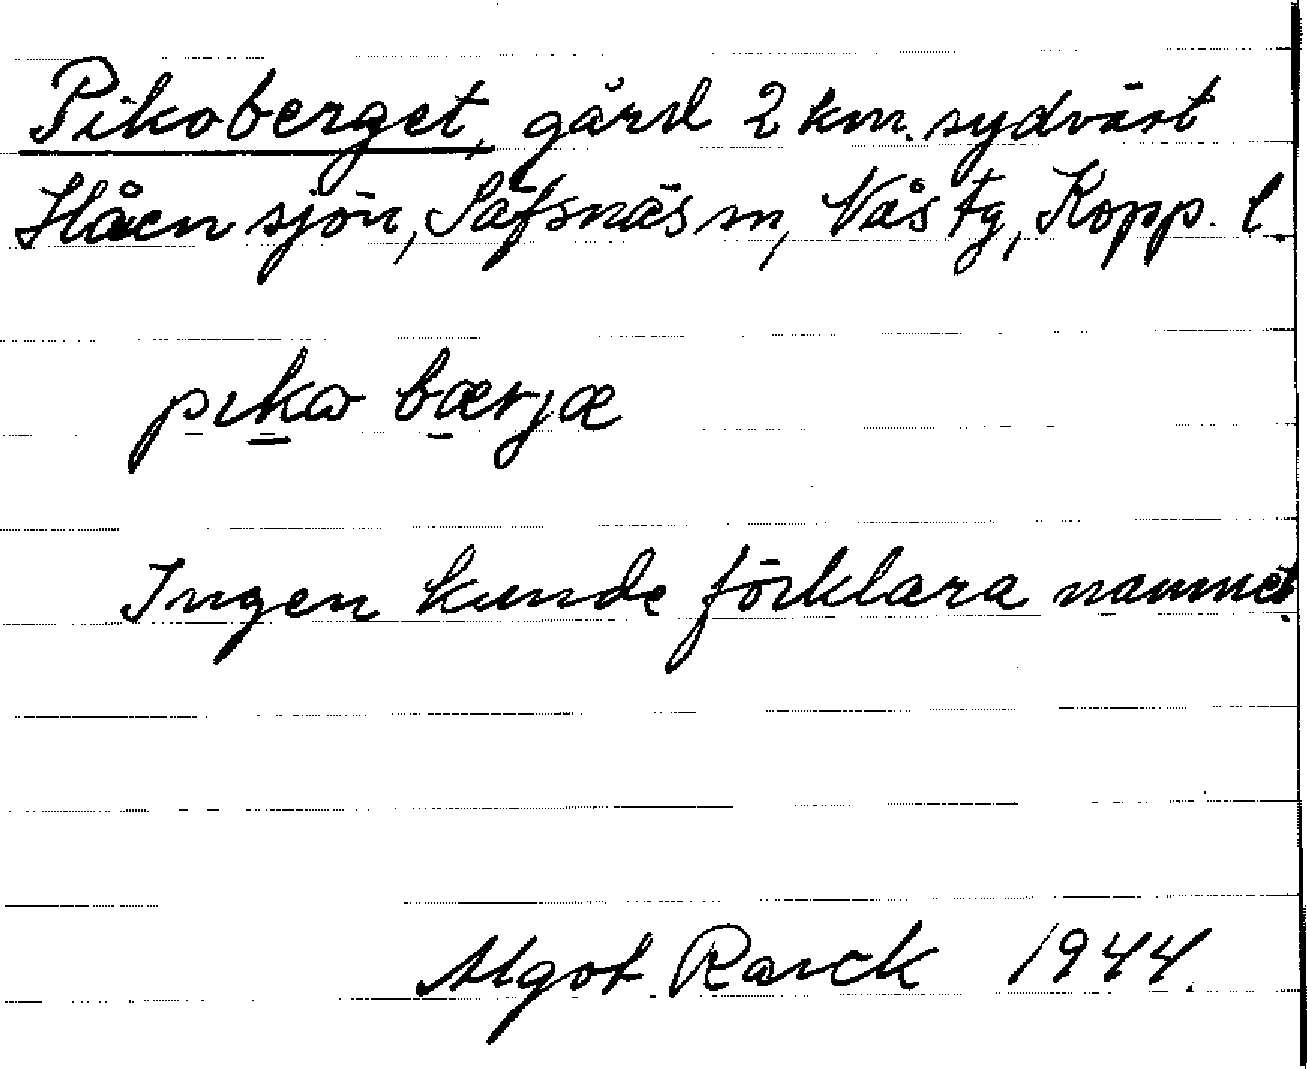 Pikoberget, gård 2 km. sydväst
Håen sjön, Säfsnäs sn, Nås tg, Kopp. l.
pikω bærjæ
Ingen kunde förklara namnet.
Algot Rarck 1944.